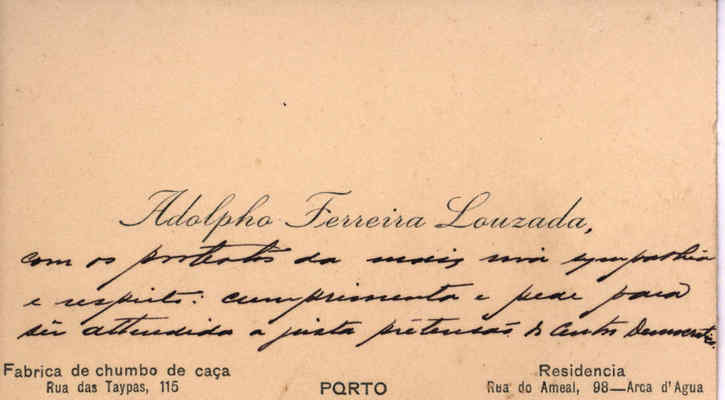 Adolpho Ferreira Louzada,
com os protestos da mais viva sympathia
e respeito: cumprimenta e pede para
sêr attendida a justa pretensão do Centro Democratico.
Fabrica de chumbo de caça
Rua das Taypas, 115
PORTO
Residencia
Rua do Ameal, 98—Arca d'Agua